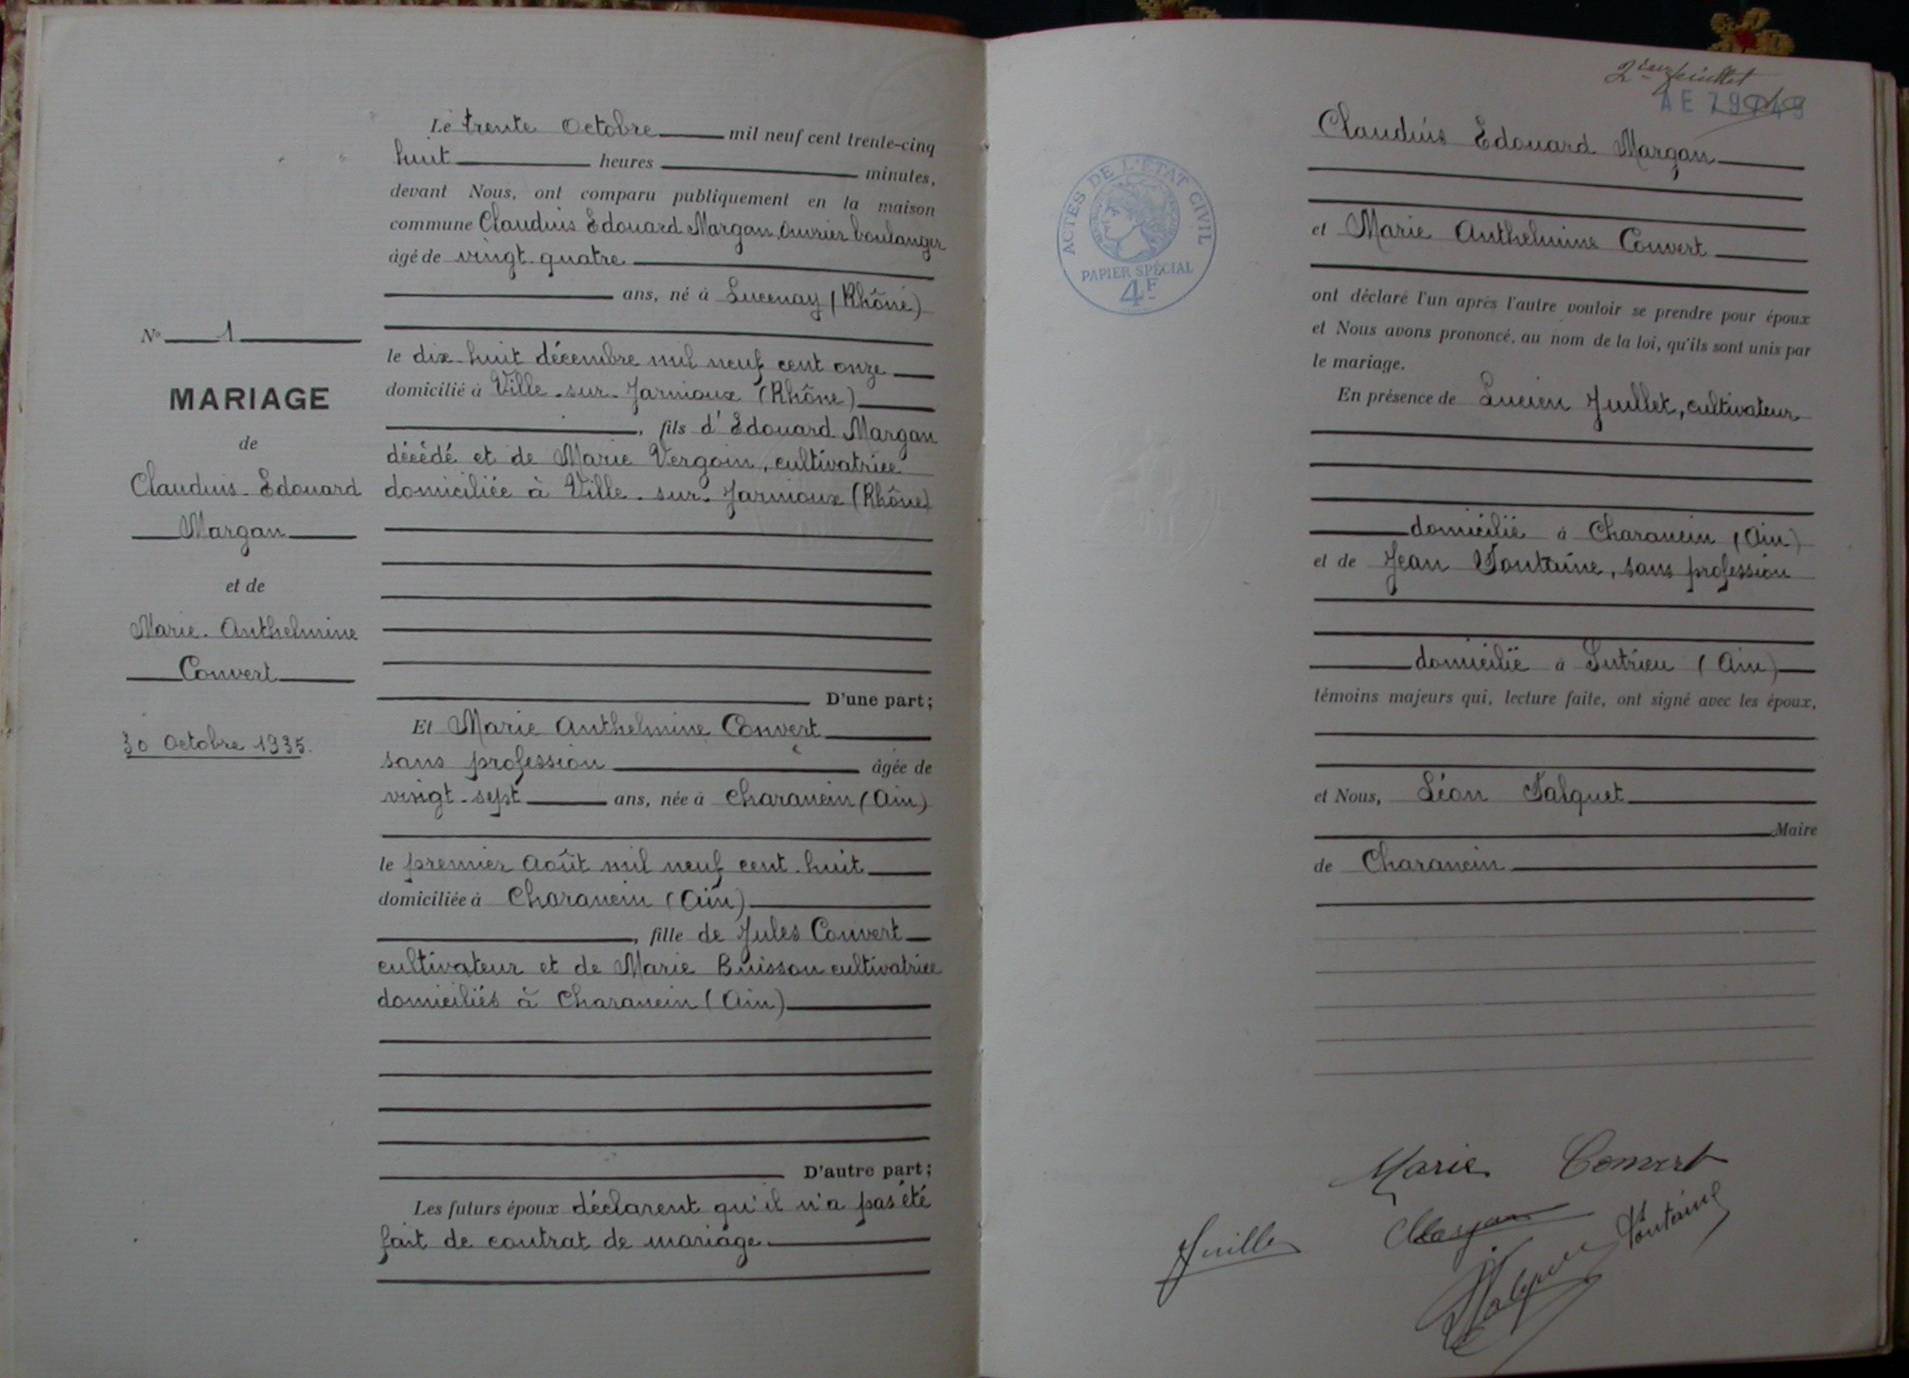 N° 1
MARIAGE
de
Claudius-Edouard
Margan
et de
Marie-Anthelmine
Convert
30 Octobre 1935.
Le trente Octobre mil neuf cent trente-cinq
huit heures minutes,
devant Nous, ont comparu publiquement en la maison
commune Claudius Edouard Margan, ouvrier boulanger
âgé de vingt-quatre
ans, né à Lucenay (Rhône)
le dix-huit décembre mil neuf cent onze
domicilié à Ville-sur-Jarnioux (Rhône)
, fils d'Edouard Margan
décédé et de Marie Vergoin, cultivatrice
domiciliée à Ville-sur-Jarnioux (Rhône)
D'une part;
Et Marie Anthelmine Convert
sans profession âgée de
vingt-sept ans, née à Charancin (Ain)
le premier Août mil neuf cent huit
domiciliée à Charancin (Ain)
, fille de Jules Convert
cultivateur et de Marie Buisson cultivatrice
domiciliés à Charancin (Ain)
D'autre part;
Les futurs époux déclarent qu'il n'a pas été
fait de contrat de mariage.
2ième feuillet
AE
ACTES DE L'ÉTAT CIVIL
PAPIER SPÉCIAL
4F
Claudius Edouard Margan
et Marie Anthelmine Convert
ont déclaré l'un après l'autre vouloir se prendre pour époux
et Nous avons prononcé, au nom de la loi, qu'ils sont unis par
le mariage.
En présence de Lucien Juillet, cultivateur
domicilié à Charancin (Ain)
et de Jean Fontaine, sans profession
domicilié à Sutrieu (Ain)
témoins majeurs qui, lecture faite, ont signé avec les époux,
et Nous, Léon Falquet
Maire
de Charancin
Marie Convert
Juillet
Margan
Fontaine
Falquet